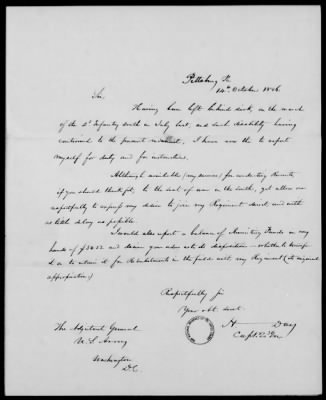 Pittsburg Pa
14th October 1846
Sir,
Having been left behind sick, on the march
of the 2d Infantry south in July last, and such disability having
continued to the present moment, I have now the to report
myself for duty and for instructions.
Although available (my services) for conducting Recruits
if you should think fit, to the seat of war in the south, yet allow me
respectfully to express my desire to join my Regiment direct, and with
as little delay as possible.
I would also report a balance of Recruiting Funds in my
hands of and desire your advice as to its disposition - whether to
it or to retain it for Reenlistments in the field with my Regiment (its original
appropriation.)
Respectfully Sir
Your obt. servt.
H Day
Capt. 2d Inf
The Adjutant General
U.S. Army
Washington
D.C.